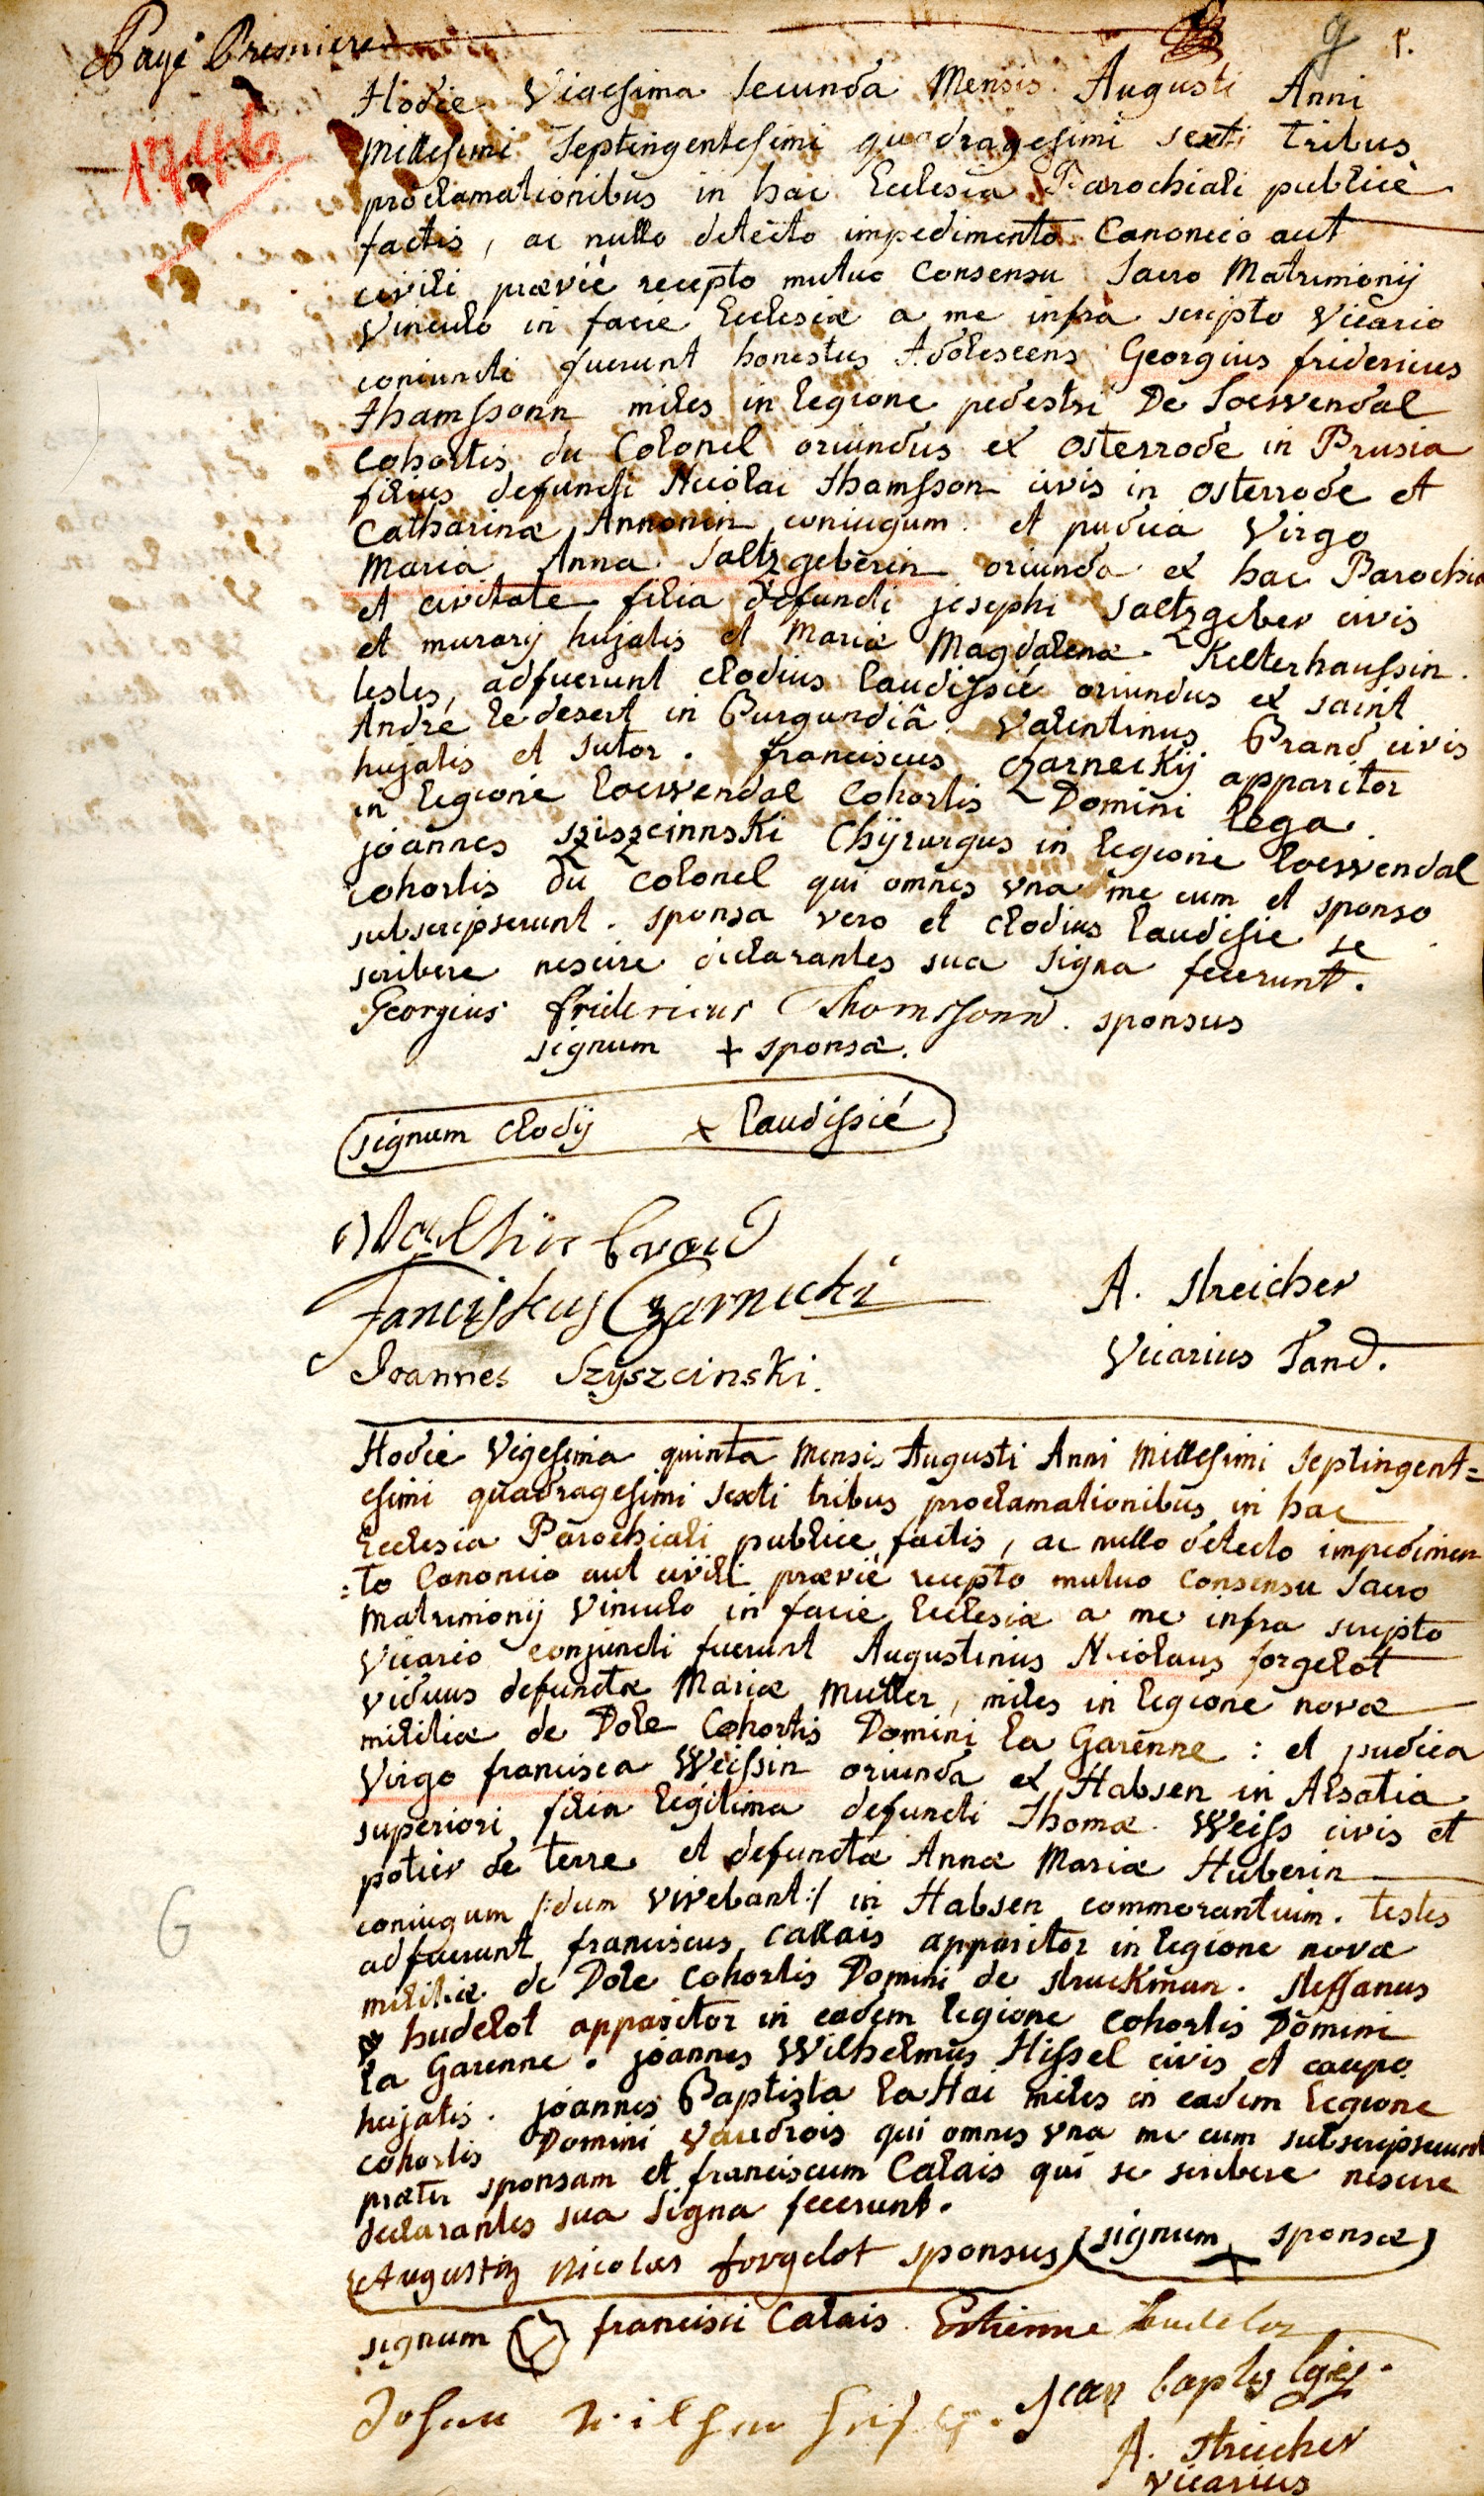 Page Premiere
9 1.
1746
Hodie Vigesima secunda Mensis Augusti Anni
Millesimi Septingentesimi quadragesimi sexti tribus
proclamationibus in hac Ecclesia Parochiali publicè
factis, ac nullo detecto impedimento Canonico aut
civili prævié recepto mutuo Consensu Sacro Matrimonij
Vinculo in facie Ecclesiæ a me infra scripto Vicario
coniuncti fuerunt honestus Adolescens Georgius fridericus
thamssonn miles in legione pedestri De Loewendal
Cohortis du Colonel oriundus ex Osterrode in Prusia
filius defuncti Nicolai thamsson civis in osterrode et
Catharinæ Annonin coniugum. et pudica Virgo
Maria Anna Saltzgeberin oriunda ex hac Parochia
et civitate filia defuncti josephi Saltzgeber civis
et murarij hujatis et Mariæ Magdalenæ Kelterhaussin.
testes adfuerunt Clodius laudissié oriundus ex saint
André le desert in Burgundiâ. Valentinus Brand civis
hujatis et sutor. franciscus Czarneckij apparitor
in legione loewendal Cohortis Domini lega.
joannes szisz­cinnski Chijrurgus in legione loewendal
cohortis du Colonel qui omnes vna me cum et sponso
subscripserunt. sponsa vero et Clodius laudisie se
scribere nescire declarantes sua Signa fecerunt.
Georgius fridericus Thomssonn. sponsus
signum + sponsæ.
signum Clodij x laudissié
Valtin brand
Franciskus Czarnecki
A. Streicher
Joannes Szyszcinski.
Vicarius Tand.
Hodie Vigesima quinta Mensis Augusti Anni Millesimi Septingent=
esimi quadragesimi Sexti tribus proclamationibus in hac
Ecclesia Parochiali publice factis, ac nullo detecto impedimen
=to Canonico aut civili prævié recepto mutuo Consensu Sacro
Matrimonij Vinculo in facie Ecclesiæ a me infra scripto
Vicario conjuncti fuerunt Augustinus Nicolaus forgelot
viduus defunctæ Mariæ Muller, miles in legione novæ
militiæ de Dole Cohortis Domini la Garenne : et pudica
Virgo francisca Weissin oriunda ex Habsen in Alsatia
superiori filia legitima defuncti Thomæ Weiss civis et
potier de terre et defunctæ Annæ Mariæ Huberin
coniugum /:dum vivebant:/ in Habsen commorantium. testes
adfuerunt franciscus Callais apparitor in legione novæ
militiæ de Dole Cohortis Domini de struckman. steffanus
hudelot apparitor in eadem legione Cohortis Domini
la Garenne. joannes Wilhelmus Hissel civis et caupo
hujatis. joannes Baptista la Hai miles in eadem legione
cohortis Domini Vaudrois qui omnes vna me cum subscripserunt
præter sponsam et franciscum Calais qui se scribere nescire
declarantes sua signa fecerunt.
Augustin Nicolas forgelot sponsus signum + sponsæ
signum francisci Calais. Estienne hudelot
Johan Wilhem
Jean baptis
A. Streicher
vicarius
G